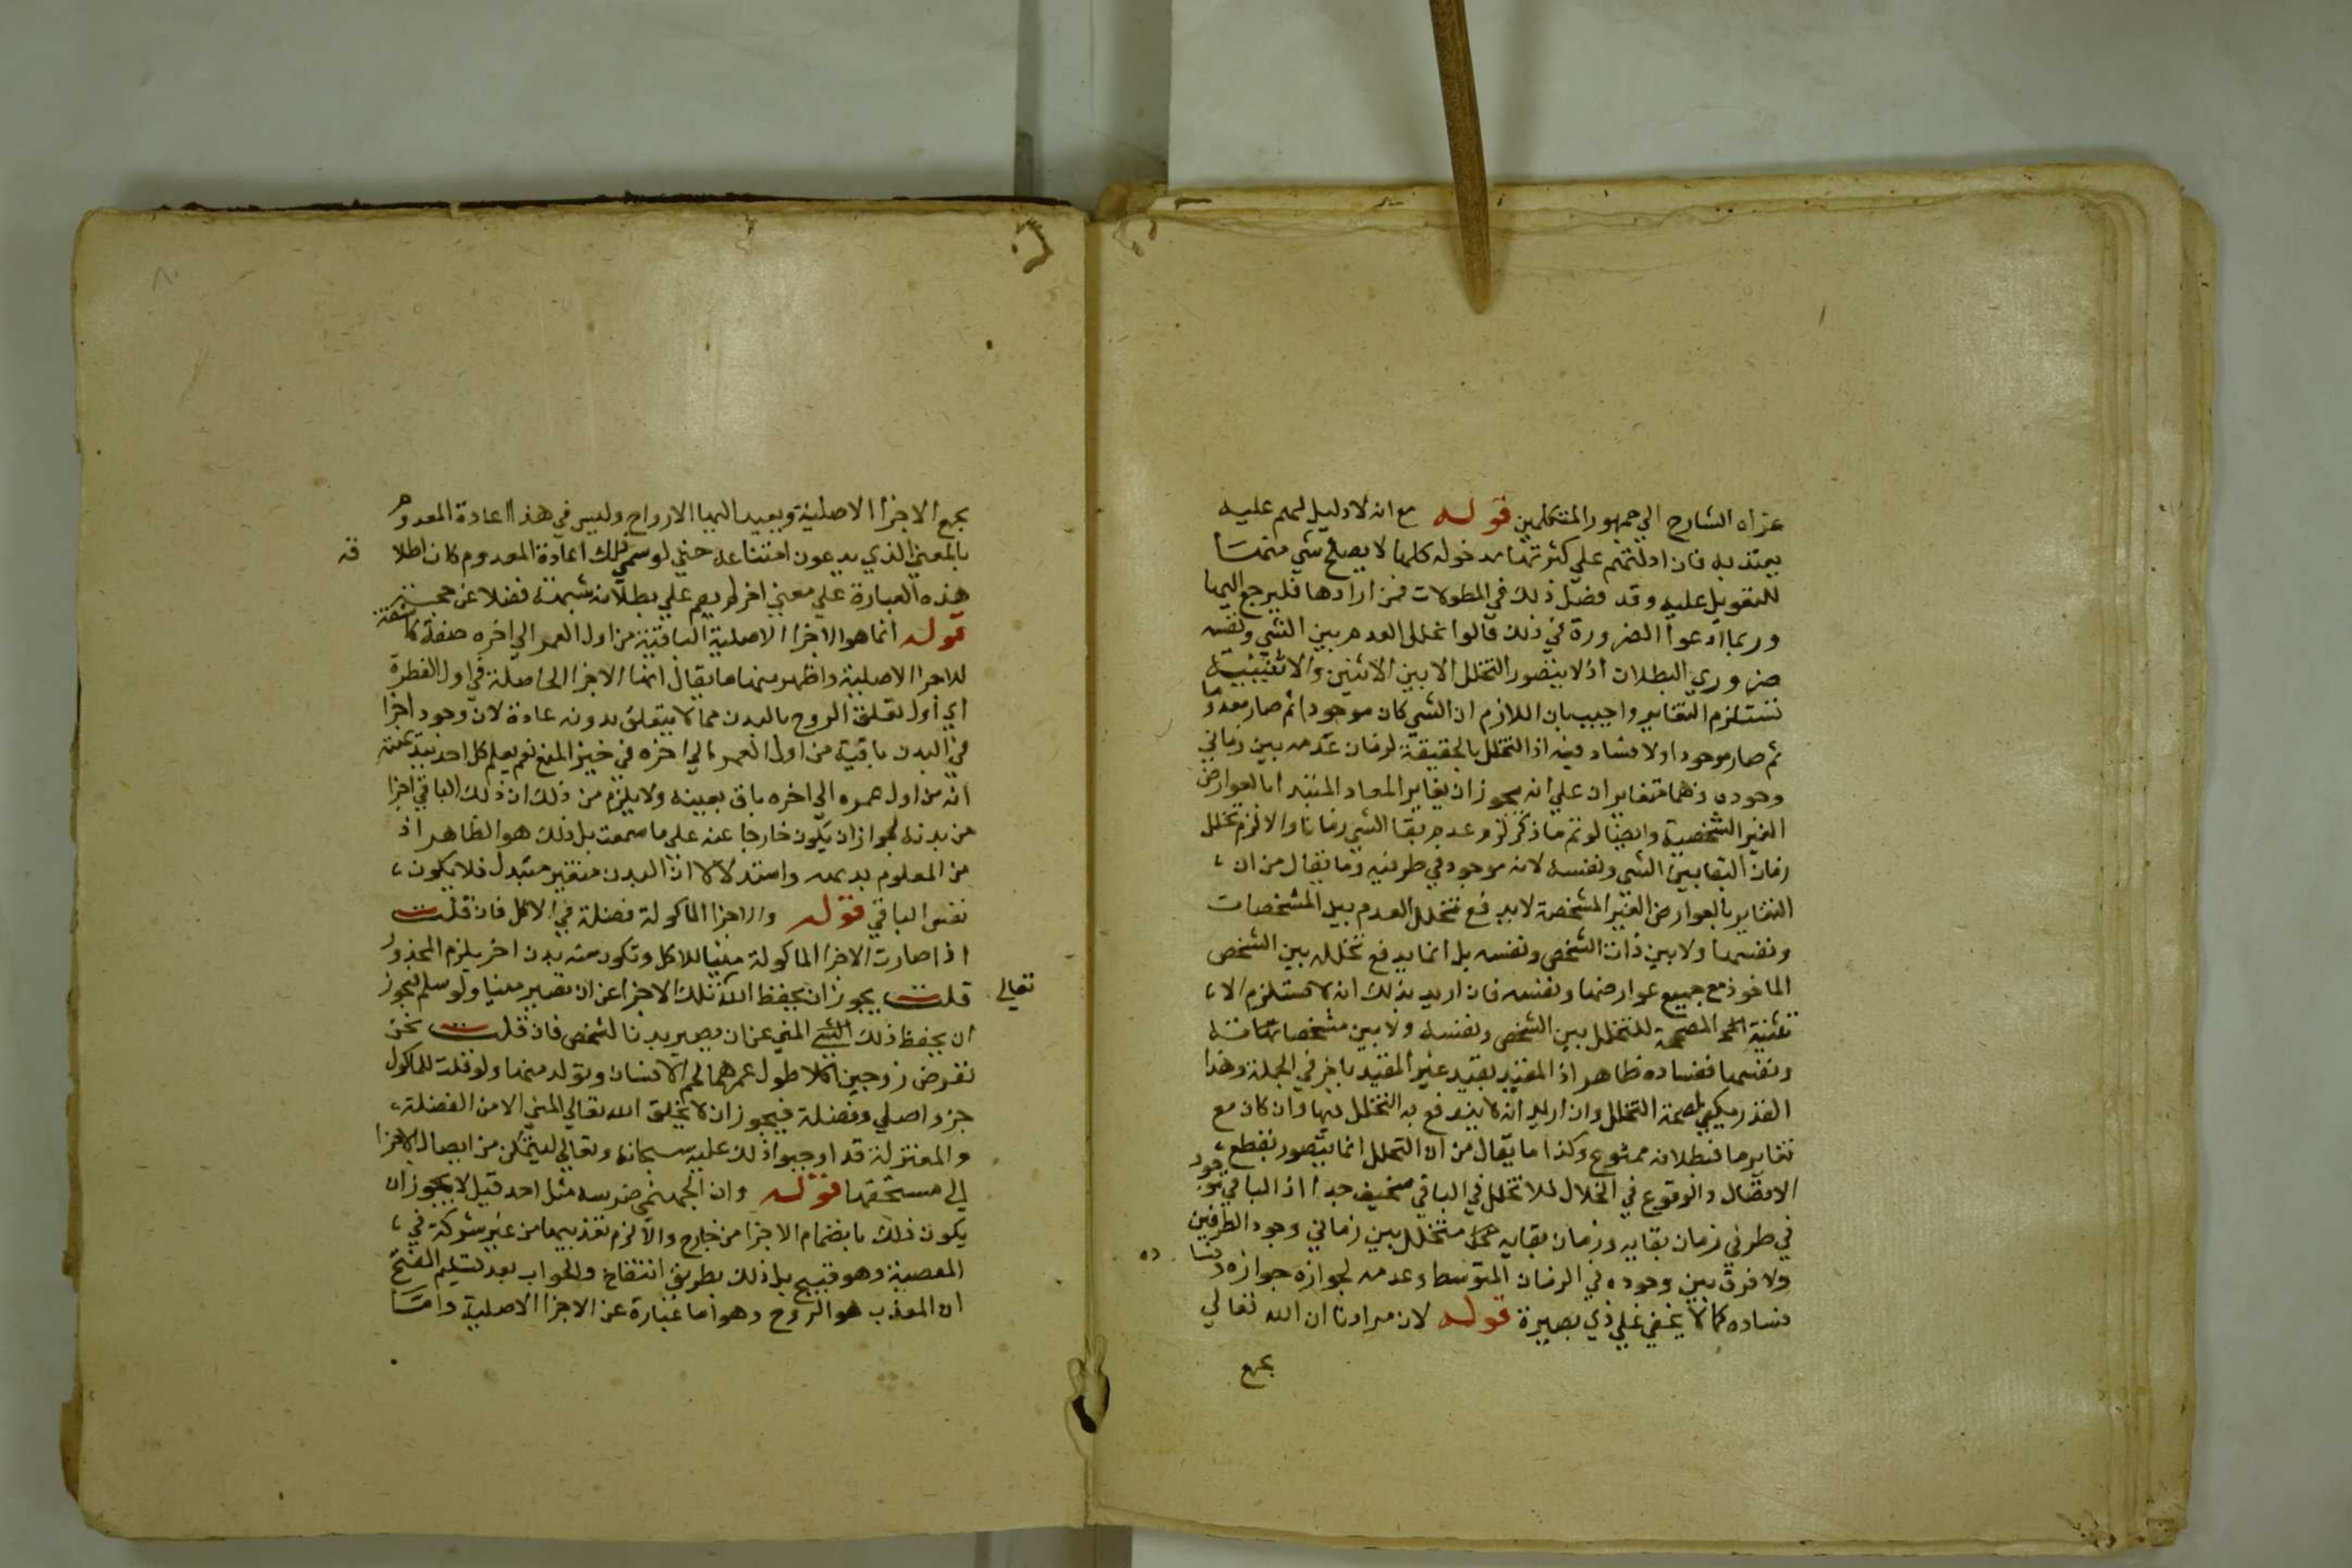 عزاه الشارح الي جمهور المتكلمين قوله مع انه لا دليل لهم عليه
يعتد به فان ادلتهم علي كثرتها مدخوله كلها لا يصلح شي منها
للتعويل عليه وقد فصل ذلك في المطولات فمن ارادها فليرجع اليها
وربما ادعوا الضرورة في ذلك قالوا تخلل العدم بين الشي ونفسه
ضروري البطلان اذ لا يتصور التخلل الا بين الاثنين والاثنينية
تستلزم التغاير واجيب بان اللازم ان الشي كان موجودا ثم صار معدوما
ثم صار موجودا ولا فساد فيه اذ التخلل بالحقيقة لزمان عدمه بين زماني
وجوده وهما متغايران علي انه يجوز ان يغاير المعاد المبتدا بالعوارض
الغير الشخصية وايضا لو تم ما ذكر لزم عدم بقا الشي زمانا والا لزم تخلل
زمان البقا بين الشي ونفسه لانه موجود في طرفيه وما يقال من ان
التغاير بالعوارض الغير المشخصة لا يدفع تخلل العدم بين المشخصات
ونفسها ولا بين ذات الشخص ونفسه بل انما يدفع تخلله بين الشخص
الماخوذ مع جميع عوارضها ونفسه فان اريد بذلك انه لا تستلزم الا
المصححة للتخلل بين الشخص ونفسه ولا بين مشخصاته
ونفسها ففساده ظاهر اذ المقيد بقيد غير المقيد باخر في الجملة وهذا
القدر يكفي لصحة التخلل وان اريد انه لا يندفع به التخلل فيها وان كان مع
تغايرها فبطلانه ممنوع وكذا ما يقال من ان التخلل انما يتصور بقطع
الاتصال والوقوع في الخلال فلا تخلل في الباقي سخيف جدا اذ الباقي موجود
في طرفي زمان بقايه وزمان بقايه متخلل بين زماني وجود الطرفين
ولا فرق بين وجوده في الزمان المتوسط وعدمه لجوازه جوازه وفسا ده
فساده كما لا يخفي علي ذي بصيرة قوله لان مرادنا ان الله تعالي
يجمع
يجمع الاجزا الاصلية ويعيد اليها الارواح وليس في هذا اعادة المعدوم
بالمعني الذي يدعون امتناعه حتي لو سمي ذلك اعادة المعدوم كان اطلا قه
هذه العبارة علي معني اخر لم يقم علي بطلانه شبهة فضلا عن حجة
قوله انما هو الاجزا الاصلية الباقية من اول العمر الي اخره صفة كاشفة
للاجزا الاصلية واظهر منها ما يقال انها الاجزا الحاصلة في اول الفطرة
اي اول تعلق الروح بالبدن مما لا يتعلق بدونه عادة لان وجود اجزا
في البدن باقية من اول العمر الي اخره في حيز المنع نعم يعلم كل احد
انه من اول عمره الي اخره باق بعينه ولا يلزم من ذلك ان ذلك الباقي اجزا
من بدنه لجواز ان يكون خارجا عنه علي ما سمعت بل ذلك هو الظاهر اذ
من المعلوم بديهه واستدلالا ان البدن متغير متبدل فلا يكون
نفس الباقي قوله والاجزا الماكولة فضلة في الاكل فان قلت
اذا صارت الاجزا الماكولة منيا للاكل وتكون منه بدن اخر يلزم المحذور
قلت يجوز ان يحفظ الله تعالي تلك الاجزا عن ان تصير منيا ولو سلم فيجوز
ان يحفظ ذلك الشي المني عن ان يصير بدنا لشخص فان قلت نحن
نفرض زوجين اكلا طول عمرهما لحم الانسان وتولد منهما ولو قلت للماكول
جزو اصلي وفضلة فيجوز ان لا يخلق الله تعالي المني الا من الفضلة
والمعتزلة قد اوجبوا ذلك عليه سبحانه وتعالي ليتمكن من ايصال الاجزا
الي مستحقها قوله وان الجهنمي ضرسه مثل احد قيل لا يجوز ان
يكون ذلك بانضمام الاجزا من خارج والا لزم تعذيبها من غير شركة في
المعصية وهو قبيح بل ذلك بطريق انتفاخ والجواب بعد تسليم القبح
ان المعذب هو الروح وهو اما عبارة عن الاجزا الاصلية واما